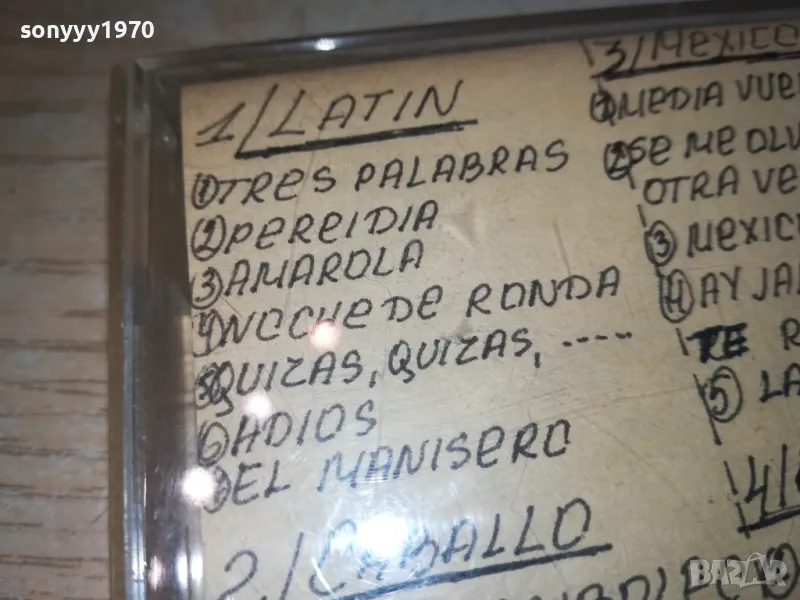 sonyyy1970
1/ LATIN
① TRES PALABRAS
② PEREIDIA
③ AMAROLA
④ NOCHE DE RONDA
⑤ QUIZAS, QUIZAS, .....
⑥ ADIOS
⑦ EL MANISERO
2/ CABALLO
3/ MEXICO
① MEDIA VUE
② SE ME OLV
OTRA VE
③ MEXIC
④ AY JA
TE R
⑤ LA
4/
BAZAR